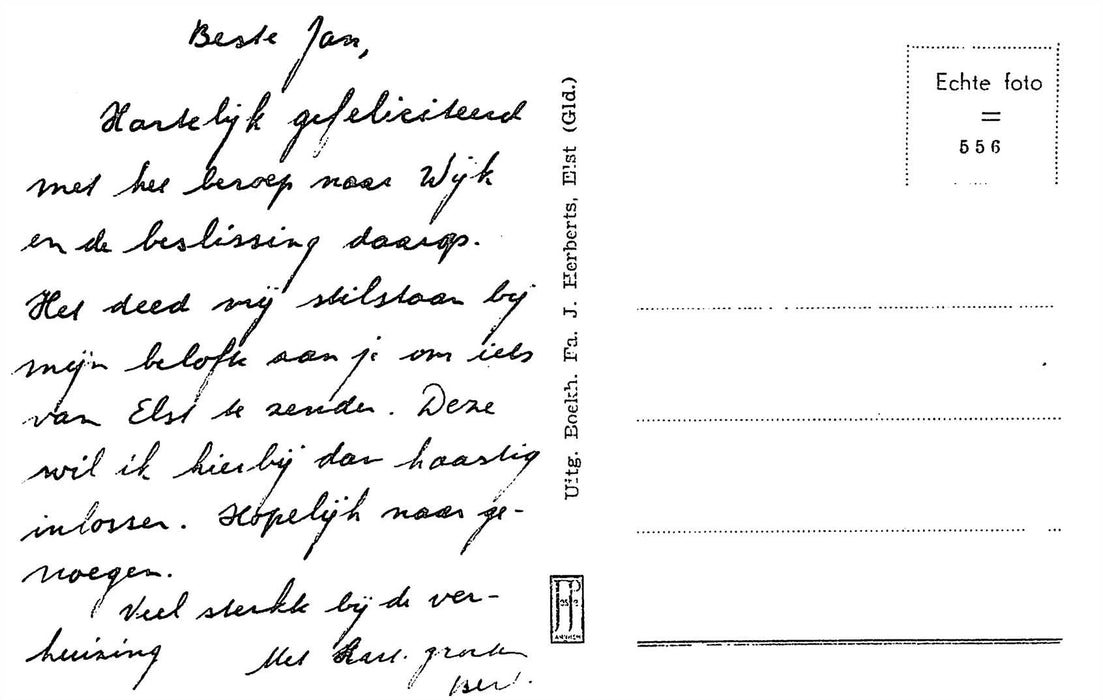 Beste Jan,
Hartelijk gefeliciteerd
met het beroep naar Wijk
en de beslissing daarop.
Het deed mij stilstaan bij
mijn belofte aan je om iets
van Elst te zenden. Deze
wil ik hierbij dan haastig
inlossen. Hopelijk naar ge-
noegen.
Veel sterkte bij de ver-
huizing
Met hart. groeten
Bert.
Uitg. Boekh. Fa. J. Herberts, Elst (Gld.)
JP
ARNHEM
Echte foto
=
556